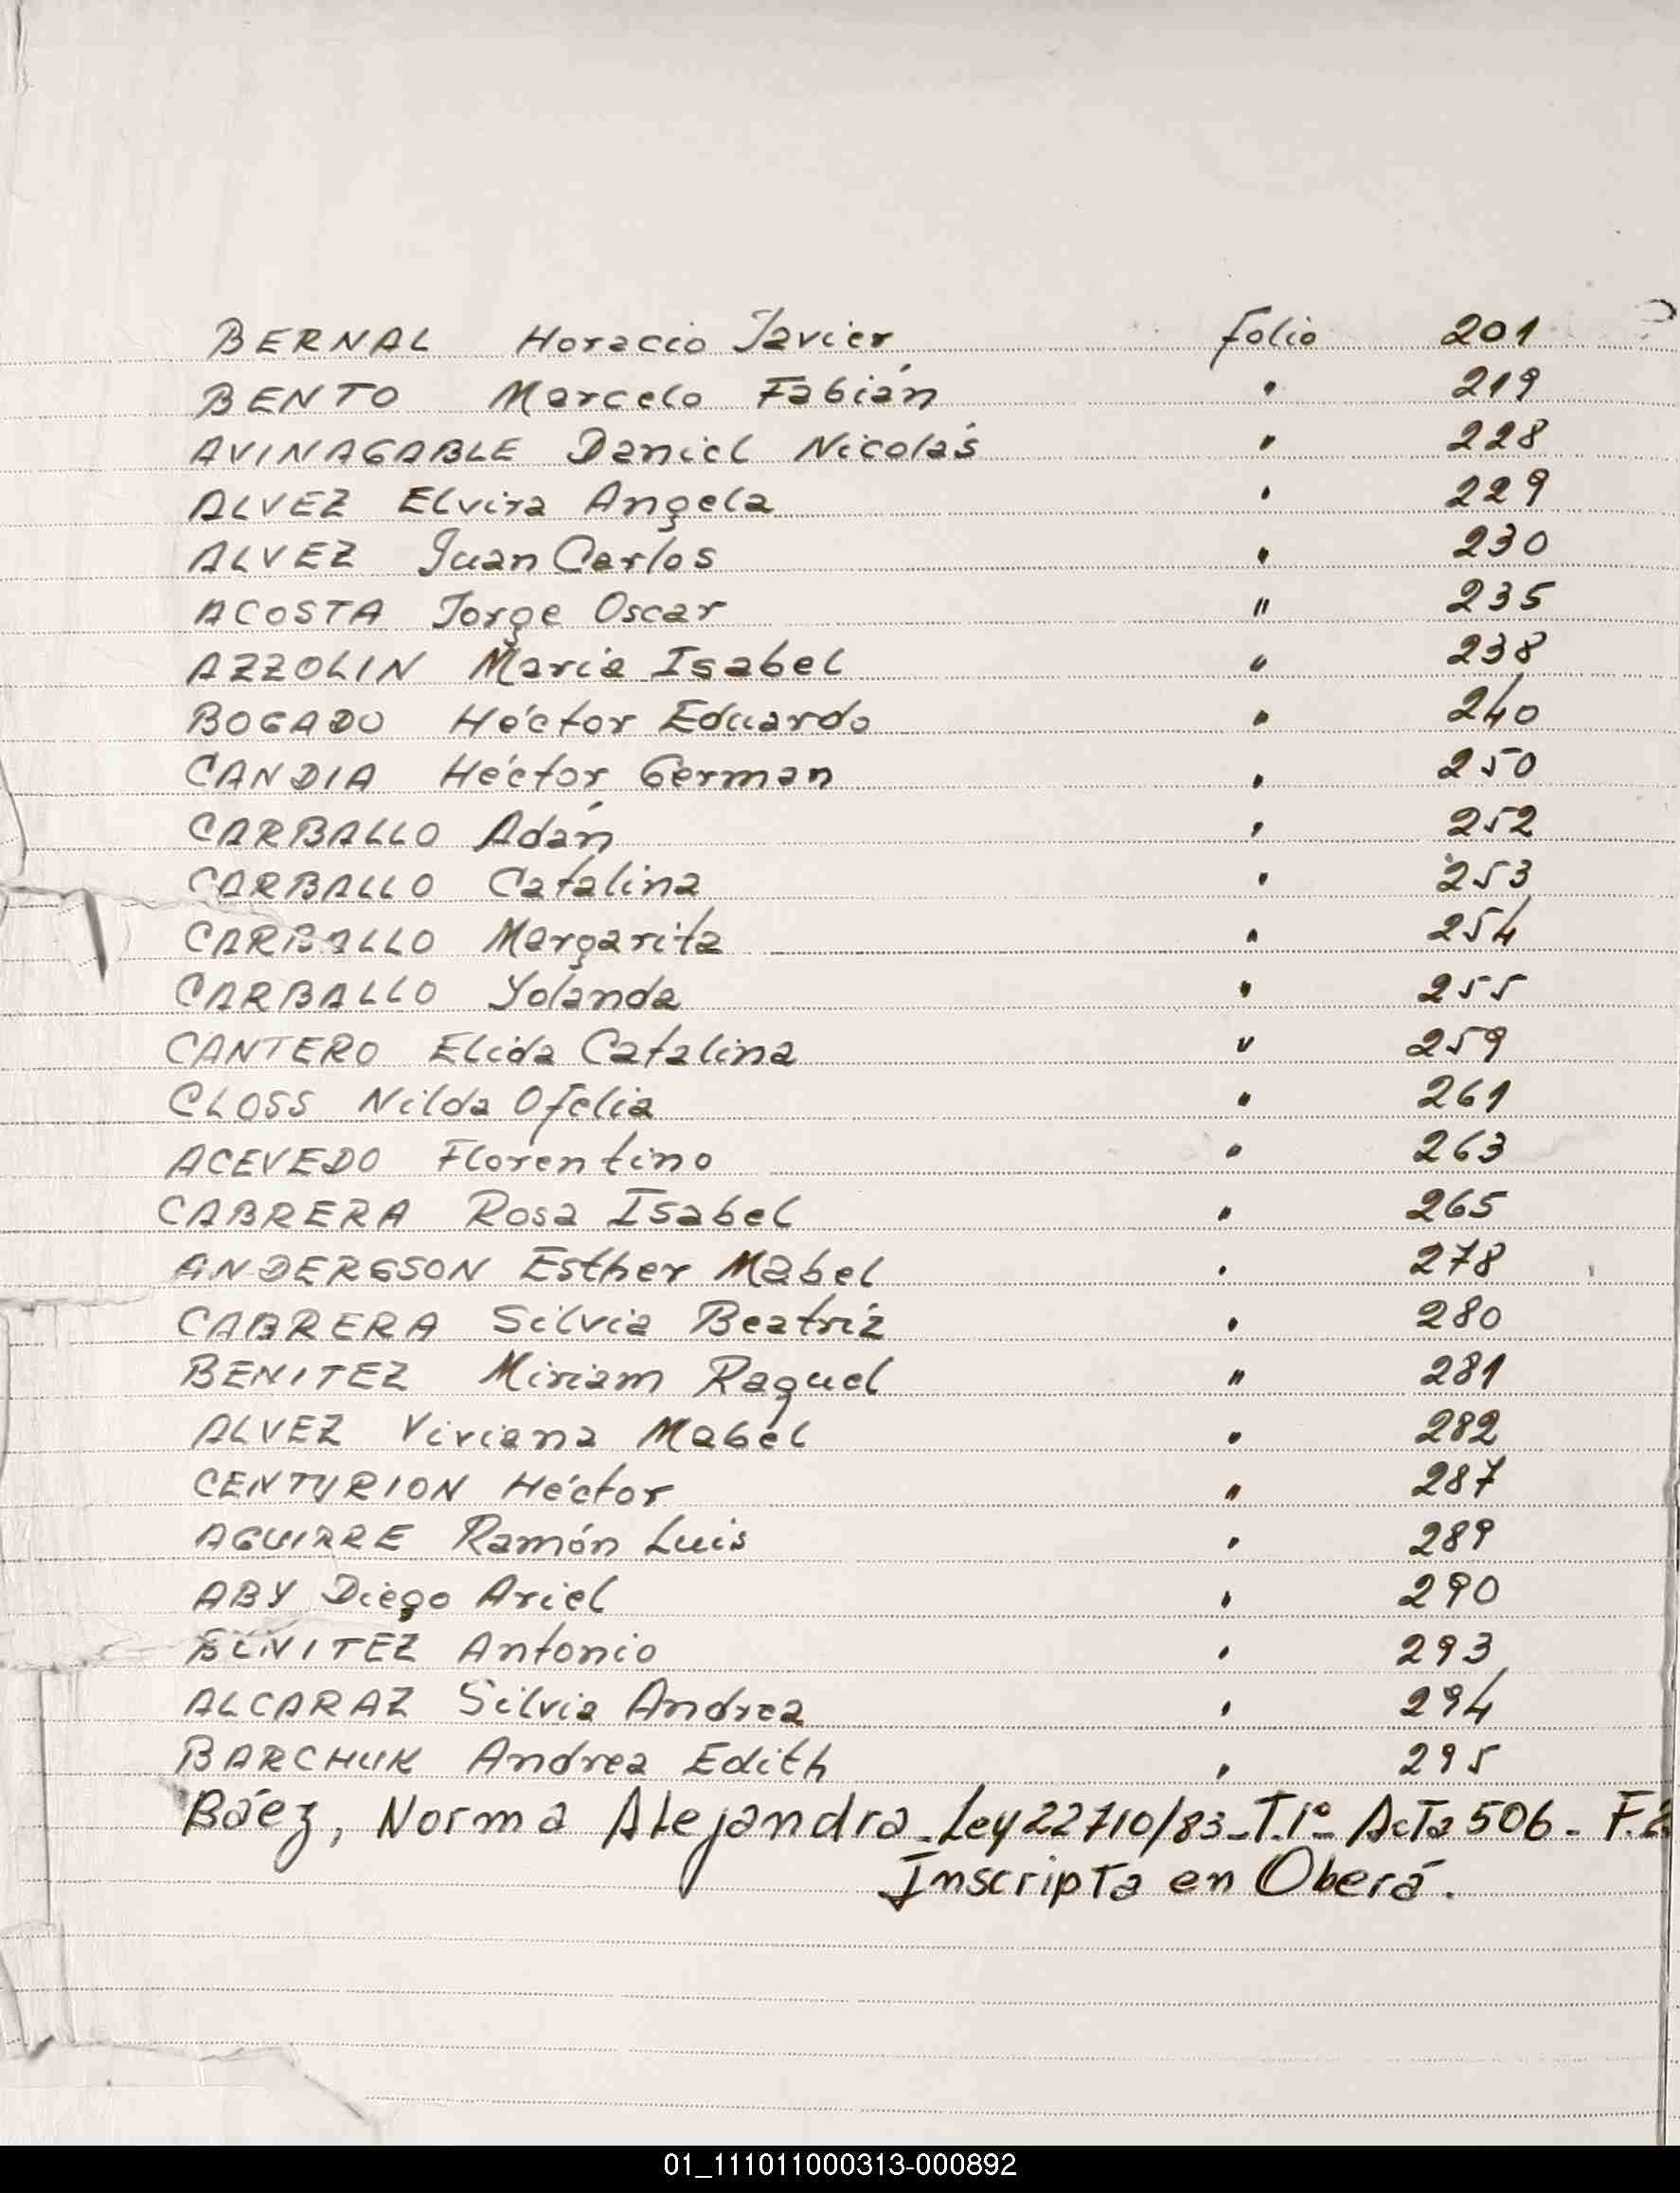 BERNAL Horacio Javier folio 201
BENTO Marcelo Fabián " 219
AVINAGABLE Daniel Nicolás " 228
ALVEZ Elvira Angela " 229
ALVEZ Juan Carlos " 230
ACOSTA Jorge Oscar " 235
AZZOLIN Maria Isabel " 238
BOGADO Héctor Eduardo " 240
CANDIA Héctor German " 250
CARBALLO Adán " 252
CARBALLO Catalina " 253
CARBALLO Margarita " 254
CARBALLO Yolanda " 255
CANTERO Elida Catalina " 259
CLOSS Nilda Ofelia " 261
ACEVEDO Florentino " 263
CABRERA Rosa Isabel " 265
ANDERGSON Esther Mabel " 278
CABRERA Silvia Beatriz " 280
BENITEZ Miriam Raquel " 281
ALVEZ Viviana Mabel " 282
CENTURION Héctor " 287
AGUIRRE Ramón Luis " 289
ABY Diego Ariel " 290
BENITEZ Antonio " 293
ALCARAZ Silvia Andrea " 294
BARCHUK Andrea Edith " 295
Báez, Norma Alejandra - Ley 22710/83 - T.1º - Acta 506 - F.
Inscripta en Oberá.
01_111011000313-000892